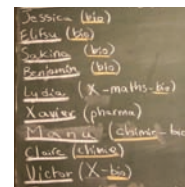 Jessica (bio)
Elifsu (bio)
Sakina (bio)
Benjamin (bio)
Lydia (X-maths-bio)
Xavier (pharma)
Manu (chimie-bio
Claire (chimie)
Victor (X-bio)